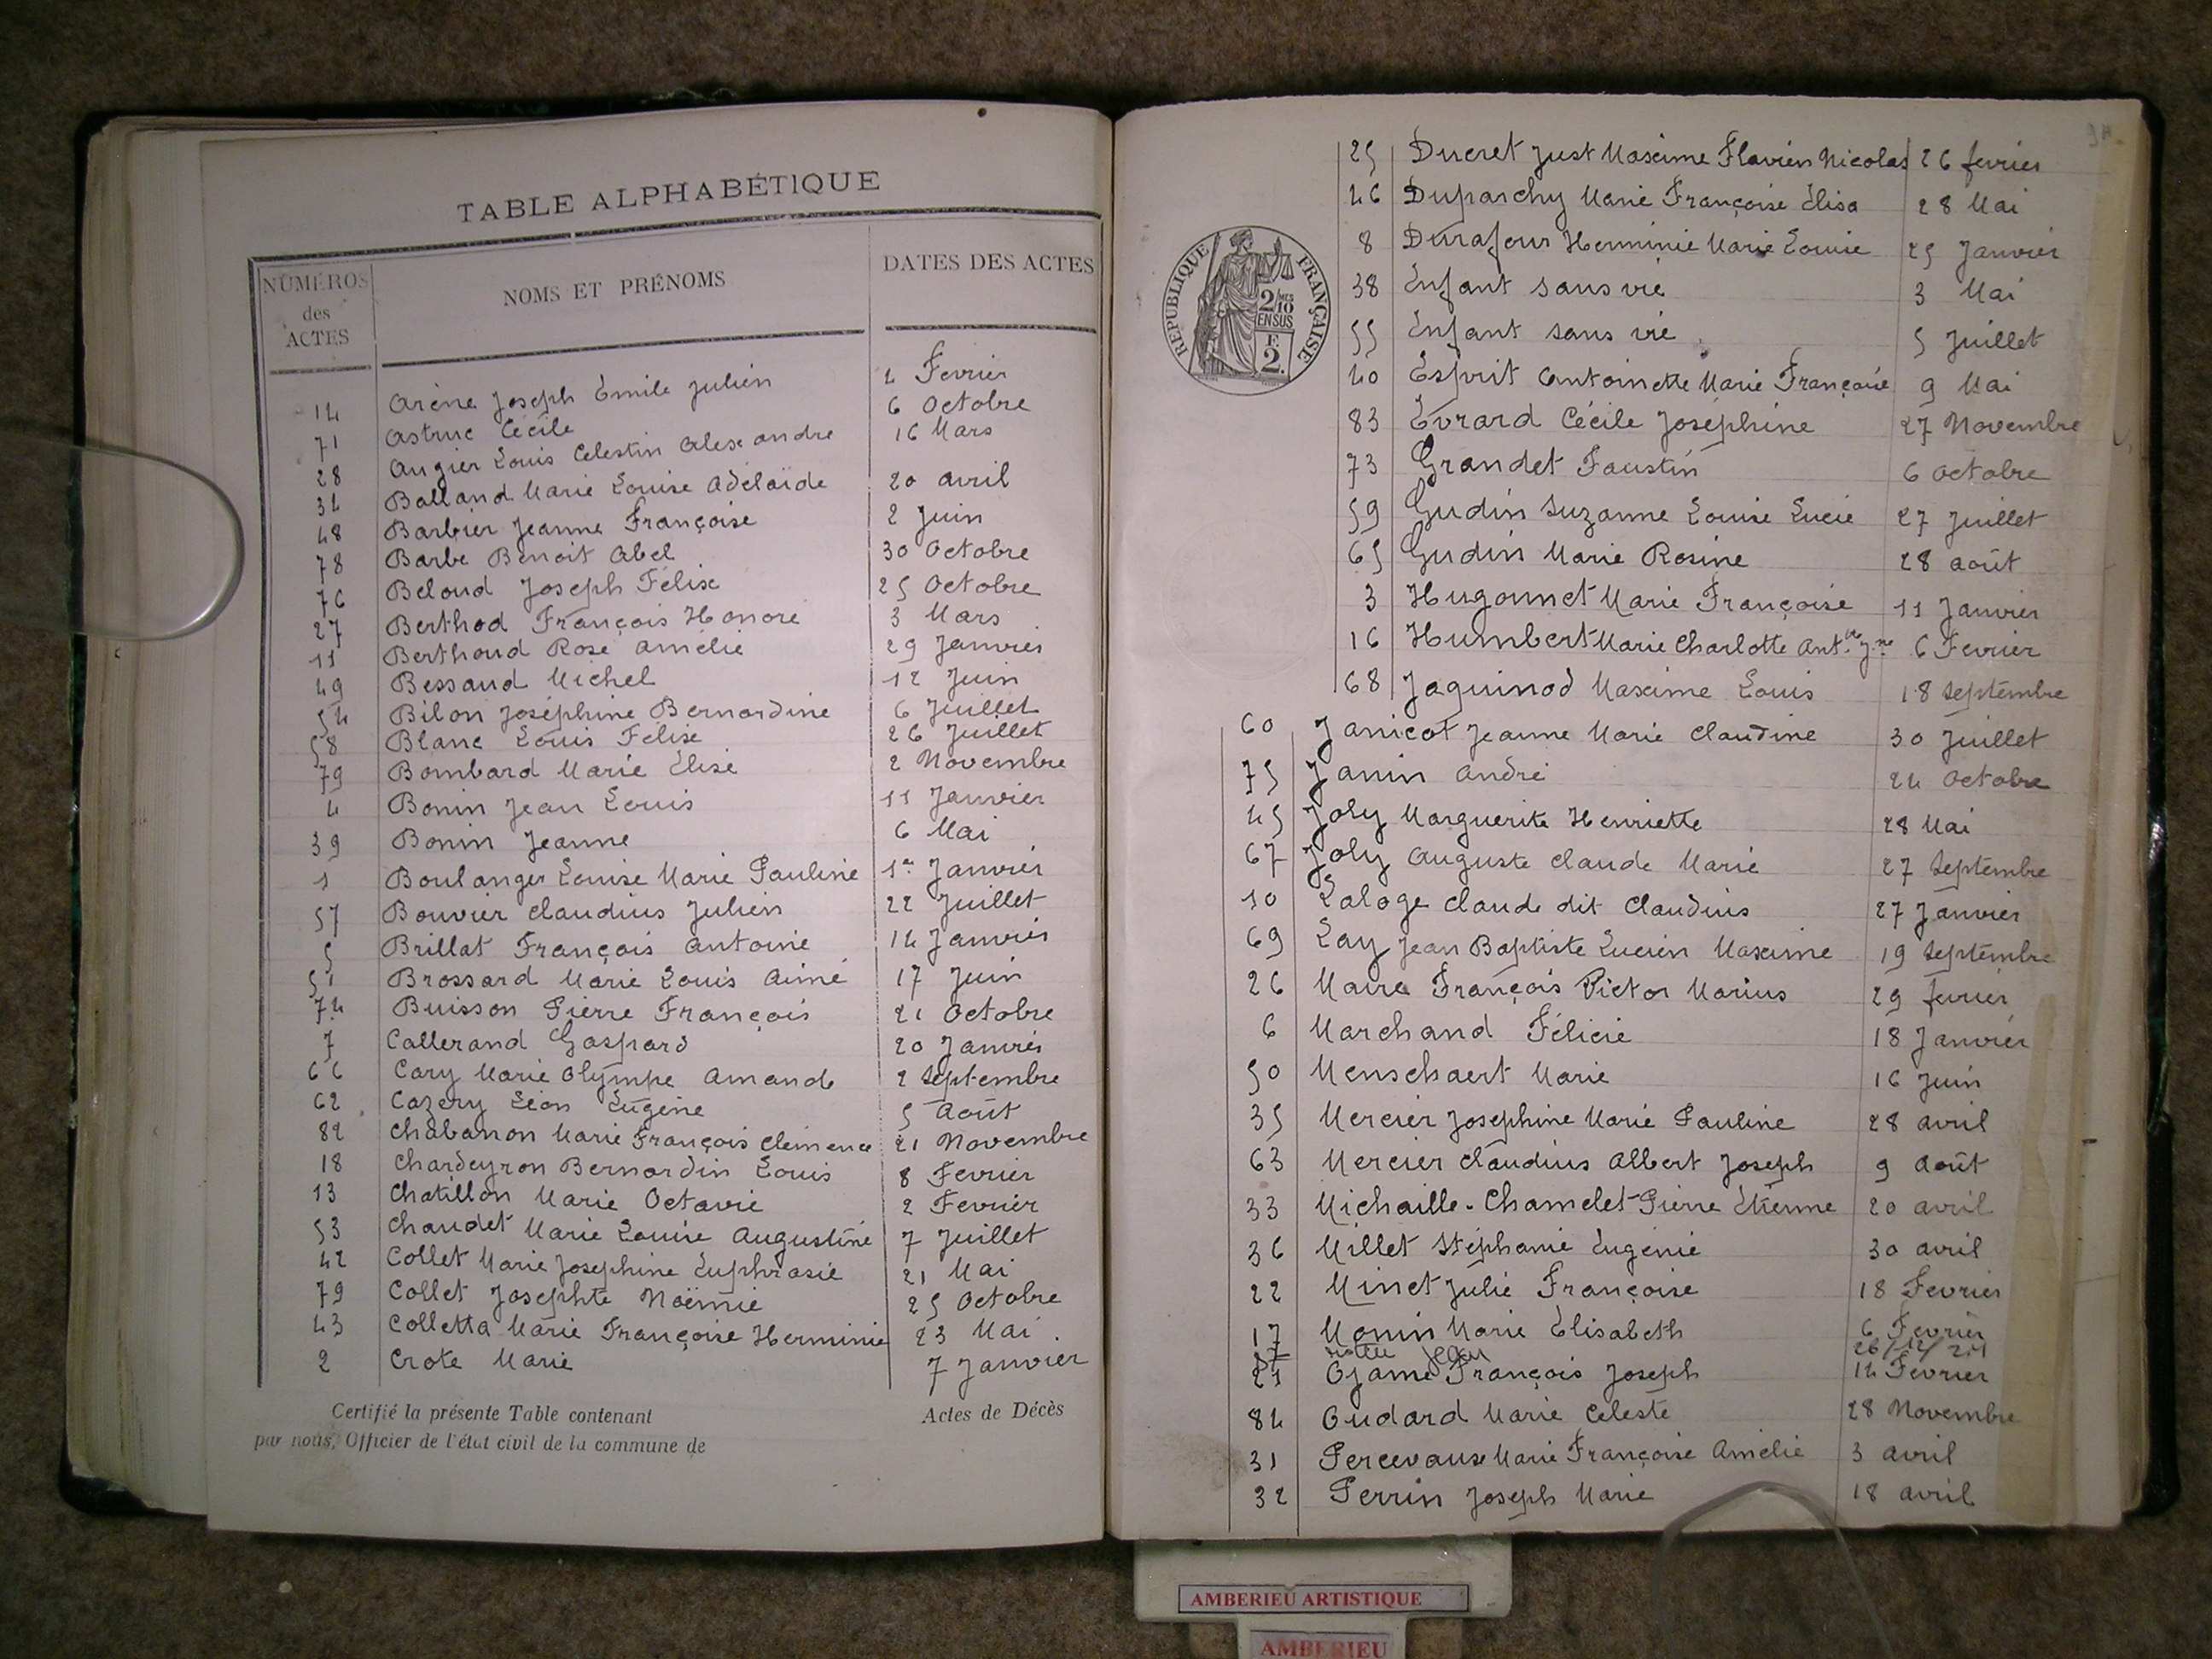 TABLE ALPHABÉTIQUE
NUMÉROS des ACTES NOMS ET PRÉNOMS DATES DES ACTES
14 Arène Joseph Emile Julien 2 Fevrier
71 Astruc Cécile 6 Octobre
28 Augier Louis Celestin Alexandre 16 Mars
34 Balland Marie Louise Adélaïde 20 avril
48 Barbier Jeanne Françoise 2 Juin
78 Barbe Benoit Abel 30 Octobre
76 Beloud Joseph Félix 25 Octobre
27 Berthod François Honoré 3 Mars
11 Berthoud Rose Amélie 29 Janvier
49 Bessaud Michel 12 Juin
54 Bilon Joséphine Bernardine 6 Juillet
58 Blanc Louis Félix 26 Juillet
79 Bombard Marie Elise 2 Novembre
4 Bonin Jean Louis 11 Janvier
39 Bonin Jeanne 6 Mai
1 Boulanger Louise Marie Pauline 1er Janvier
57 Bouvier Claudius Julien 22 Juillet
5 Brillat François Antoine 14 Janvier
51 Brossard Marie Louis Aimé 17 Juin
74 Buisson Pierre François 21 Octobre
7 Callerand Gaspard 20 Janvier
66 Cary Marie Olympe Amande 2 Septembre
62 Cazery Léon Eugène 5 Août
82 Chabanon Marie François Clémence 21 Novembre
18 Chardeyron Bernardin Louis 8 Fevrier
13 Chatillon Marie Octavie 2 Fevrier
53 Chaudet Marie Louise Augustine 7 Juillet
42 Collet Marie Josephine Euphrasie 21 Mai
79 Collet Josephte Noëmie 25 Octobre
43 Colletta Marie Françoise Herminie 23 Mai.
2 Crote Marie 7 Janvier
Certifié la présente Table contenant Actes de Décès
par nous, Officier de l'état civil de la commune de
RÉPUBLIQUE FRANÇAISE
2/10 MES
EN SUS
F.
2.
25 Ducret Just Maxime Flavien Nicolas 26 fevrier
46 Duparchy Marie Françoise Élisa 28 Mai
8 Durafour Herminie Marie Louise 25 Janvier
38 Enfant sans vie 3 Mai
55 Enfant sans vie 5 Juillet
40 Esprit Antoinette Marie Françoise 9 Mai
83 Evrard Cécile Joséphine 27 Novembre
73 Grandet Faustin 6 Octobre
59 Gudin Suzanne Louise Lucie 27 Juillet
65 Gudin Marie Rosine 28 août
3 Hugonnet Marie Françoise 11 Janvier
16 Humbert Marie Charlotte Ant. 6 Fevrier
68 Jaquinod Maxime Louis 18 Septembre
60 Janicot Jeanne Marie Claudine 30 Juillet
75 Janin André 24 Octobre
45 Joly Marguerite Henriette 28 Mai
67 Joly Auguste Claude Marie 27 Septembre
10 Laloge Claude dit Claudius 27 Janvier
69 Lay Jean Baptiste Lucien Maxime 19 Septembre
26 Maire François Victor Marius 29 fevrier
6 Marchand Félicie 18 Janvier
50 Menschaert Marie 16 Juin
35 Mercier Josephine Marie Pauline 28 avril
63 Mercier Claudius Albert Joseph 9 Août
33 Michaille-Chamelet Pierre Etienne 20 avril
36 Millet Stéphanie Eugénie 30 avril
22 Minet Julie Françoise 18 Fevrier
17 Monin Marie Élisabeth 6 Fevrier
Jean 26/12/
21 Ojame François Joseph 14 Fevrier
84 Oudard Marie Céleste 28 Novembre
31 Percevaux Marie Françoise Amélie 3 avril
32 Perrin Joseph Marie 18 avril
AMBERIEU ARTISTIQUE
AMBERIEU